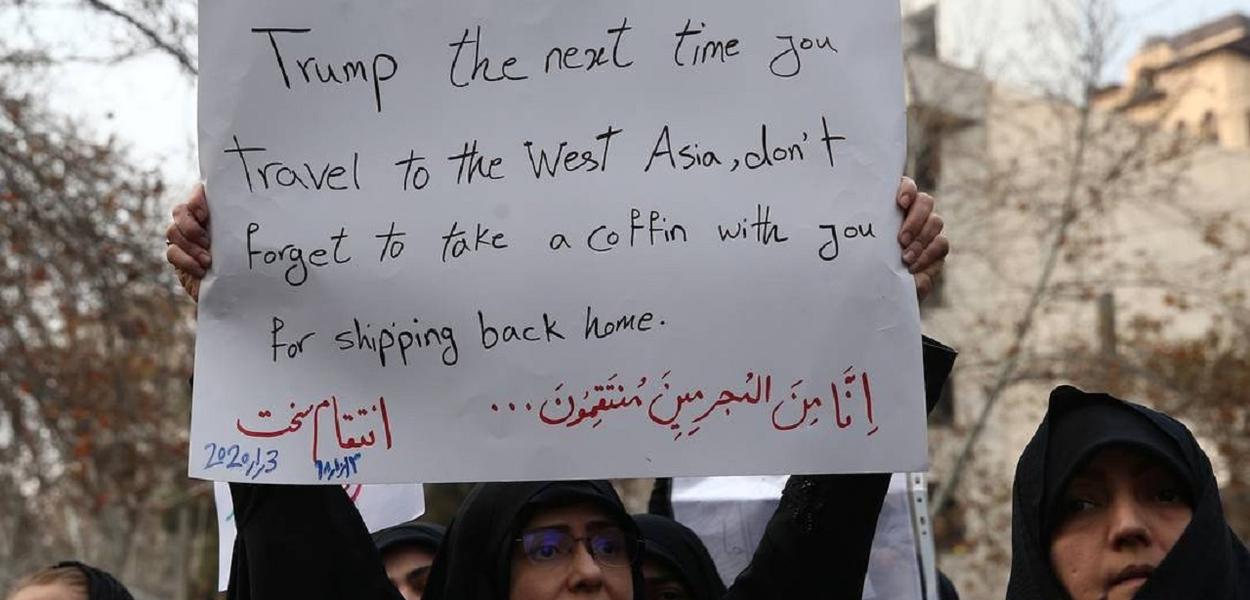 Trump the next time you
travel to the West Asia, don't
forget to take a coffin with you
for shipping back home.
إِنَّا مِنَ المُجرِمِينَ مُنتَقِمُونَ...
انتقام سخت
2020,1,3